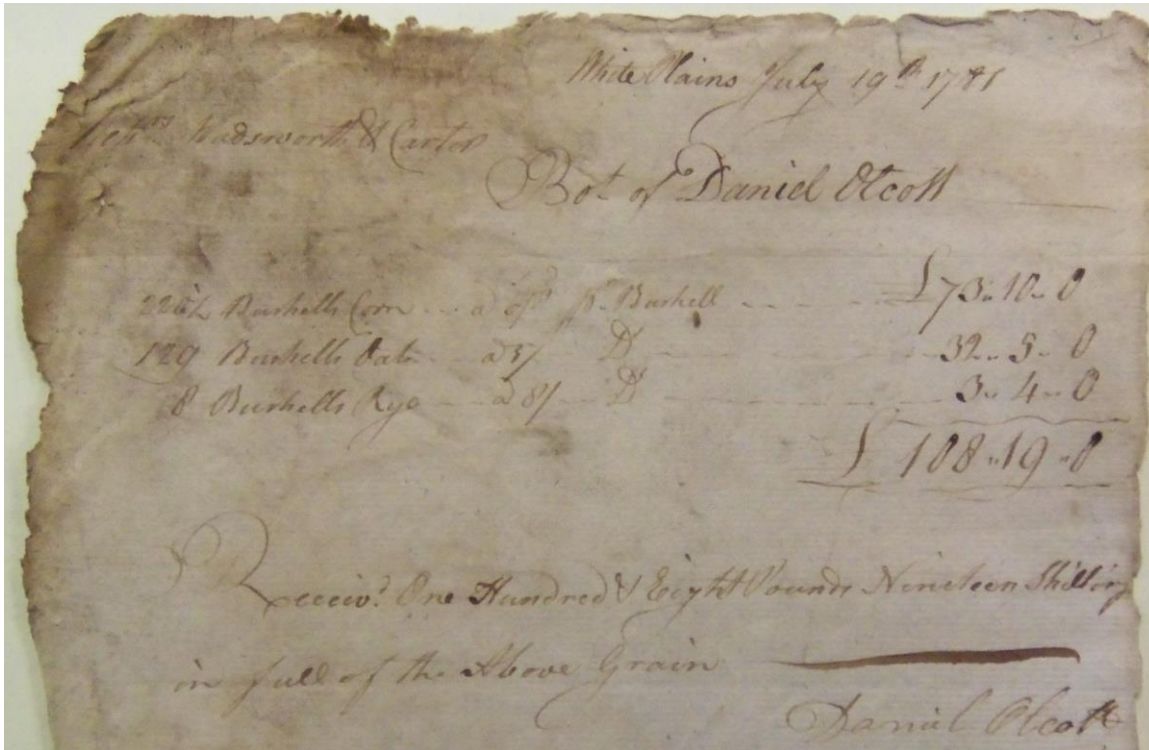 White Plains July 19th 1781
Messrs Wadsworth & Carter
Bot of Daniel Olcott
220½ Bushells Corn a 6/8 pr Bushell £73"10"0
129 Bushells Oats a 5/ Do 32"5"0
8 Bushells Rye a 8/ Do 3"4"0
£108"19"0
Receivd One Hundred & Eight Pounds Nineteen Shilling
in full of the Above Grain
Daniel Olcott